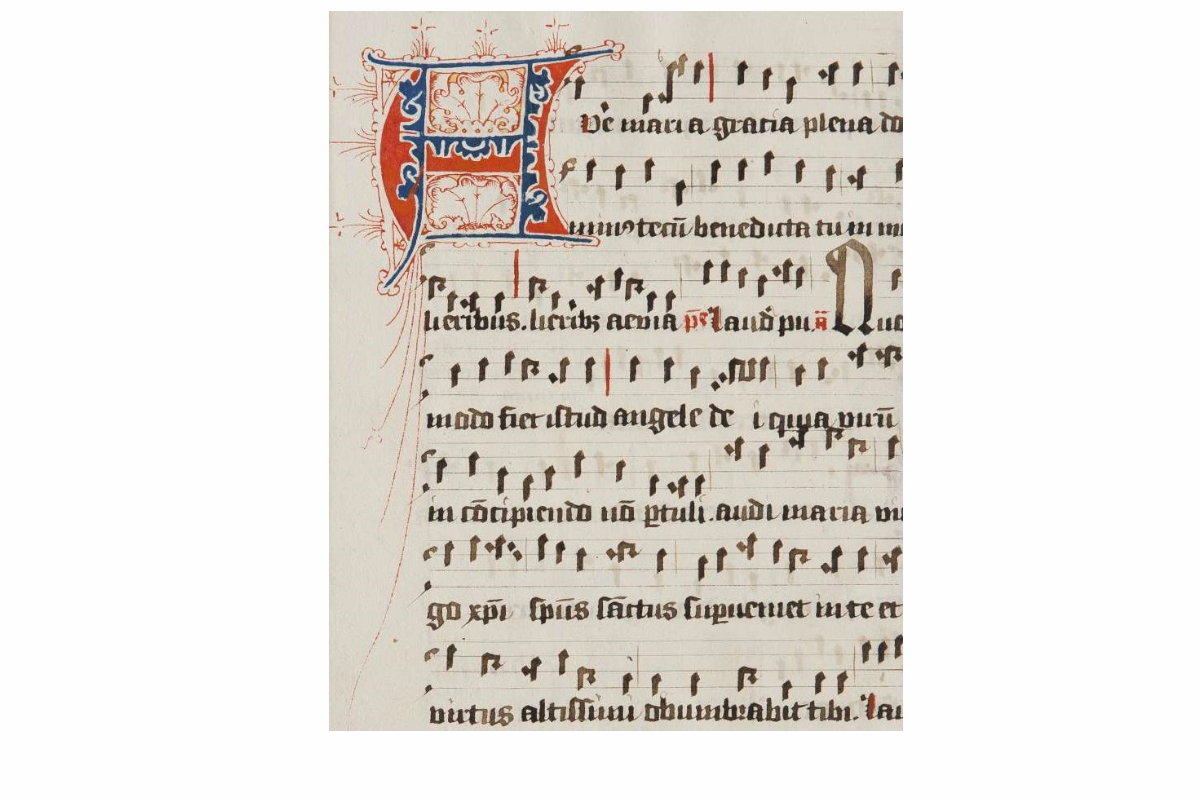 AVe maria gratia plena do
minꝰ tecū benedicta tu in mu
lieribus. lieribꝫ aevia p̄s Laud pu. a᷎ Quo
modo fiet istud angele de i quia virū
in cōcipiendo nō ꝑtuli. audi maria vir
go xp̄i sp̄us sāctus suꝑueniet in te et
virtus altissimi obumbrabit tibi. Lau